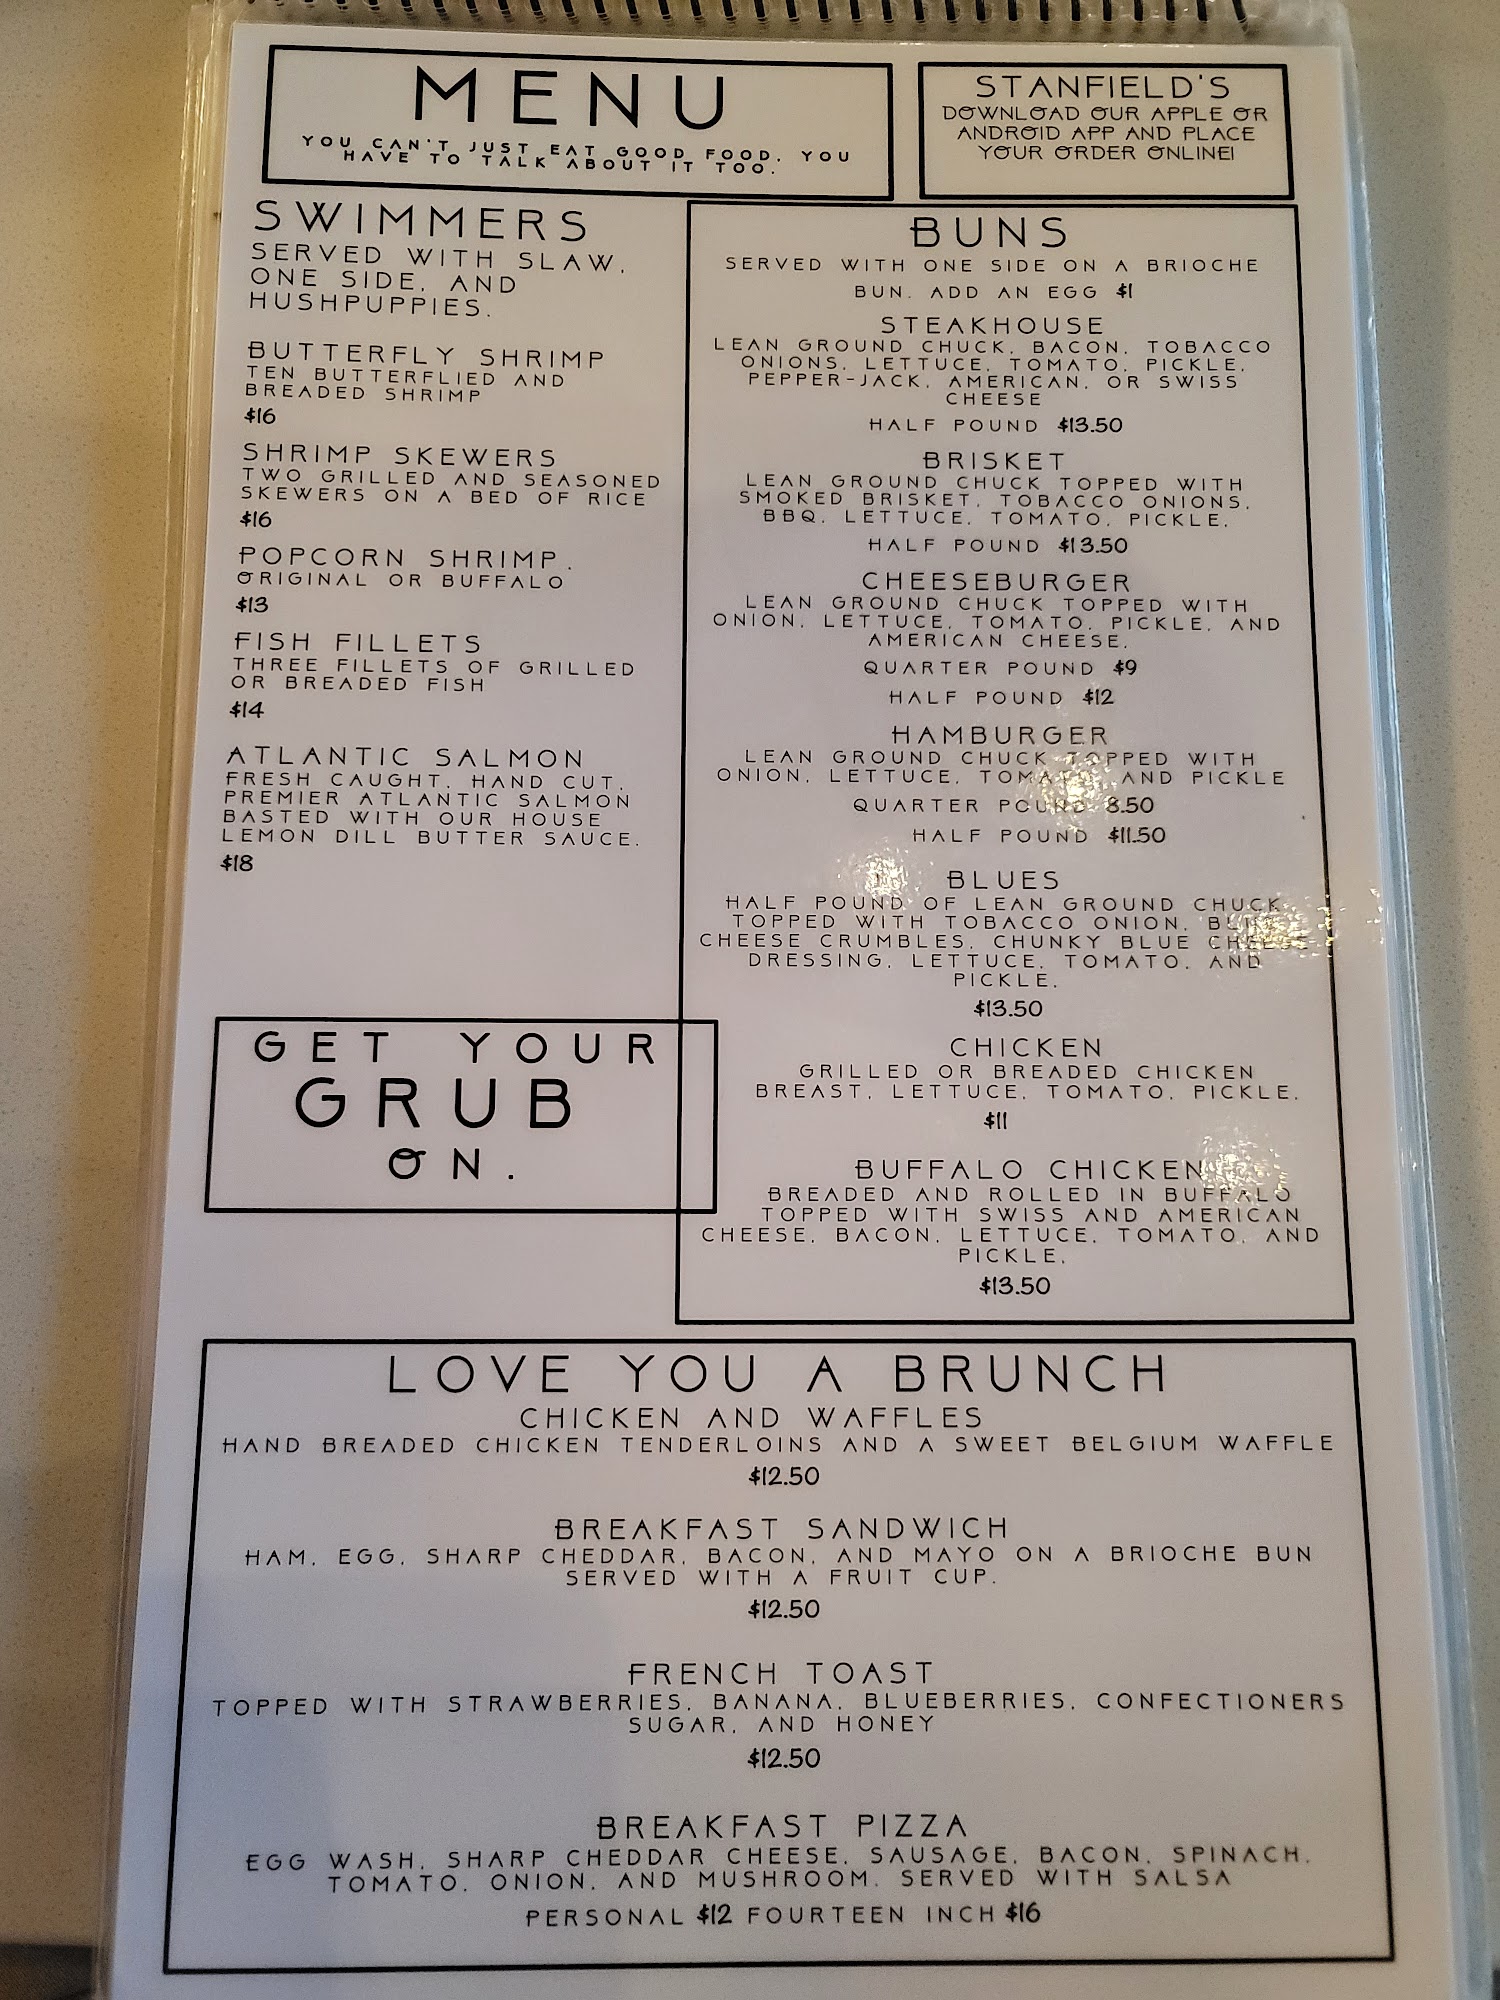 MENU
YOU CAN'T JUST EAT GOOD FOOD. YOU
HAVE TO TALK ABOUT IT TOO.
STANFIELD'S
DOWNLOAD OUR APPLE OR
ANDROID APP AND PLACE
YOUR ORDER ONLINE!
SWIMMERS
SERVED WITH SLAW,
ONE SIDE, AND
HUSHPUPPIES.
BUTTERFLY SHRIMP
TEN BUTTERFLIED AND
BREADED SHRIMP
$16
SHRIMP SKEWERS
TWO GRILLED AND SEASONED
SKEWERS ON A BED OF RICE
$16
POPCORN SHRIMP.
ORIGINAL OR BUFFALO
$13
FISH FILLETS
THREE FILLETS OF GRILLED
OR BREADED FISH
$14
ATLANTIC SALMON
FRESH CAUGHT, HAND CUT,
PREMIER ATLANTIC SALMON
BASTED WITH OUR HOUSE
LEMON DILL BUTTER SAUCE.
$18
GET YOUR
GRUB
ON.
BUNS
SERVED WITH ONE SIDE ON A BRIOCHE
BUN. ADD AN EGG $1
STEAKHOUSE
LEAN GROUND CHUCK, BACON, TOBACCO
ONIONS, LETTUCE, TOMATO, PICKLE,
PEPPER-JACK, AMERICAN, OR SWISS
CHEESE
HALF POUND $13.50
BRISKET
LEAN GROUND CHUCK TOPPED WITH
SMOKED BRISKET, TOBACCO ONIONS,
BBQ, LETTUCE, TOMATO, PICKLE,
HALF POUND $13.50
CHEESEBURGER
LEAN GROUND CHUCK TOPPED WITH
ONION, LETTUCE, TOMATO, PICKLE, AND
AMERICAN CHEESE.
QUARTER POUND $9
HALF POUND $12
HAMBURGER
LEAN GROUND CHUCK TOPPED WITH
ONION, LETTUCE, TOMATO, AND PICKLE
QUARTER POUND 8.50
HALF POUND $11.50
BLUES
HALF POUND OF LEAN GROUND CHUCK
TOPPED WITH TOBACCO ONION, BLUE
CHEESE CRUMBLES, CHUNKY BLUE CHEESE
DRESSING, LETTUCE, TOMATO, AND
PICKLE.
$13.50
CHICKEN
GRILLED OR BREADED CHICKEN
BREAST, LETTUCE, TOMATO, PICKLE.
$11
BUFFALO CHICKEN
BREADED AND ROLLED IN BUFFALO
TOPPED WITH SWISS AND AMERICAN
CHEESE, BACON, LETTUCE, TOMATO, AND
PICKLE,
$13.50
LOVE YOU A BRUNCH
CHICKEN AND WAFFLES
HAND BREADED CHICKEN TENDERLOINS AND A SWEET BELGIUM WAFFLE
$12.50
BREAKFAST SANDWICH
HAM, EGG, SHARP CHEDDAR, BACON, AND MAYO ON A BRIOCHE BUN
SERVED WITH A FRUIT CUP.
$12.50
FRENCH TOAST
TOPPED WITH STRAWBERRIES, BANANA, BLUEBERRIES, CONFECTIONERS
SUGAR, AND HONEY
$12.50
BREAKFAST PIZZA
EGG WASH, SHARP CHEDDAR CHEESE, SAUSAGE, BACON, SPINACH,
TOMATO, ONION, AND MUSHROOM. SERVED WITH SALSA
PERSONAL $12 FOURTEEN INCH $16